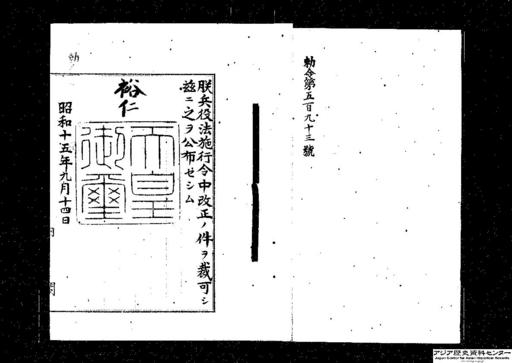 勅令第五百九十三號
朕兵役法施行令中改正ノ件ヲ裁可シ
茲ニ之ヲ公布セシム
裕仁
天皇
御璽
昭和十五年九月十四日
内閣
勅
アジア歴史資料センター
Japan Center for Asian Historical Records